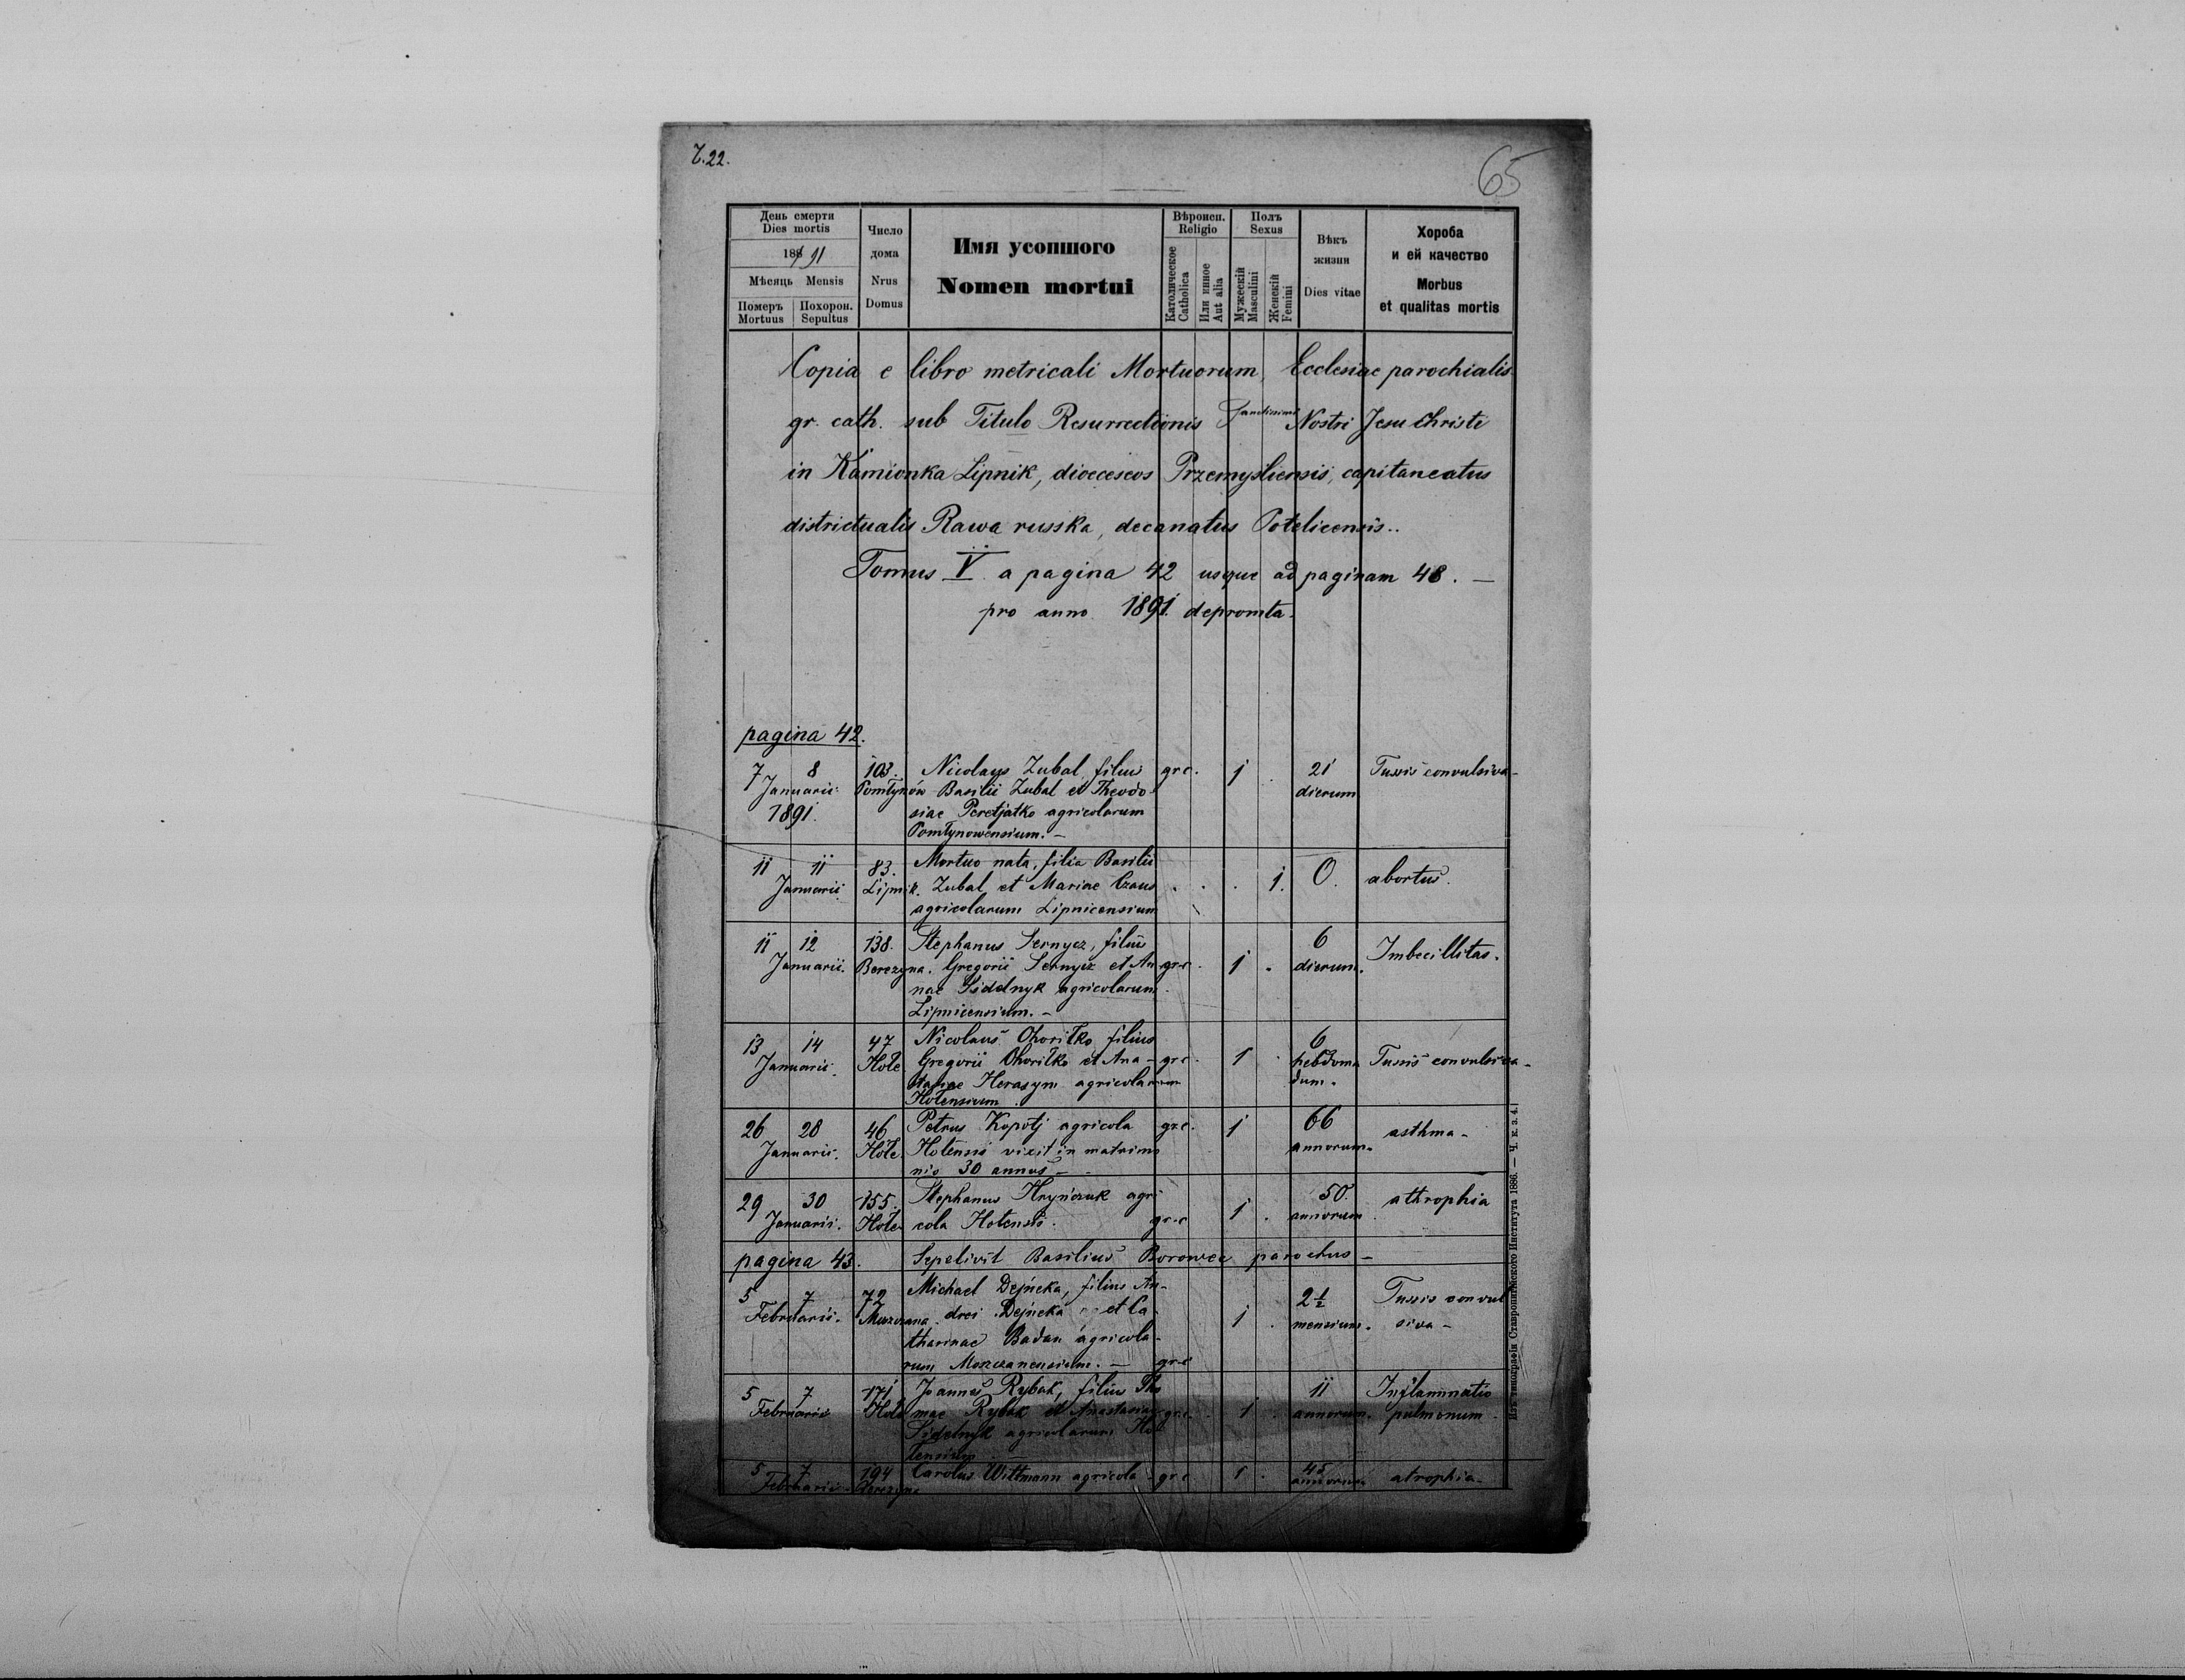 T.22.
65
День смерти
Dies mortis
188 91
Мѣсяць Mensis
Померъ Похорон.
Mortuus Sepultus
Число
дома
Nrus
Domus
Имя усопшого
Nomen mortui
Вѣроисп.
Religio
Католическое
Catholica
Или инное
Aut alia
Полъ
Sexus
Мужескій
Masculini
Женскій
Femini
Вѣкъ
жизни
Dies vitae
Хороба
и ей качество
Morbus
et qualitas mortis
Copia e libro metricali Mortuorum, Ecclesiae parochialis
gr. cath. sub Titulo Resurrectionis Nostri Jesu Christi
in Kamionka Lipnik, dioeceseos Przemysliensis, capitaneatus
districtualis Rawa russka, decanatus Potelicensis..
Tomus V. a pagina 42 usque ad paginam 48. —
pro anno 1891. depromta.
pagina 42.
7 8 103. Nicolaus Zubal, filius gr.c. 1 . 21 Tussis convulsiva -
Januarii Pomłynów Basilii Zubal et Theodo- dierum
1891. siae Peretjatko agricolarum
Pomłynowensium. —
11 11 83. Mortuo nata, filia Basilii
Januarii Lipnik. Zubal et Mariae Czaus . . . 1. 0. abortus.
agricolarum Lipnicensium
11 12 138. Stephanus Sernycz, filius 6 Imbecillitas.
Januarii. Berezyna. Gregorii Sernycz et An- gr.c. 1 . dierum.
nae Sidelnyk agricolarum
Lipnicensium. —
13 14 47 Nicolaus Ohoriłko filius 6
Januarii. Hołe Gregorii Ohoriłko et Ana- gr.c. 1 . hebdoma Tussis convulsiva -
stasiae Herasym agricolarum dum.
Hołensium.
26 28 46 Petrus Kopotj agricola gr.c. 1 66 asthma -
Januarii. Hołe. Hołensis vixit in matrimo annorum.
nio 30 annos —
29 30 155. Stephanus Hryńczuk agri- 1 . 50. athrophia
Januarii. Hołe cola Hołensis. gr.c annorum
pagina 43. Sepelivit Basilius Borowec parochus —
5 7 72 Michael Dejneka, filius An- 2½ Tussis convul
Februarii. drei Dejneka et Ca- 1 . mensium. siva -
tharinae Badan agricola-
rum —— gr.c
5 7 171 Joannes Rybak, filius Tho 11 Inflammatio
Februarii Hołe mae Rybak et Anastasiae gr.c. . 1 . annorum. pulmonum -
Sidelnyk agricolarum Ho
łensium
5 7 194 Carolus Wittmann agricola gr.c. 1 . 45 atrophia -
Februarii. Berezyna annorum
Изъ типографіи Ставропигійского Института 1886. — Ч. к. з. 4.